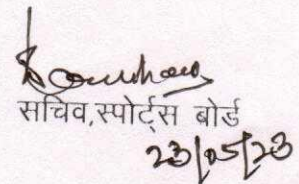 सचिव,स्पोर्ट्स बोर्ड
23/05/23